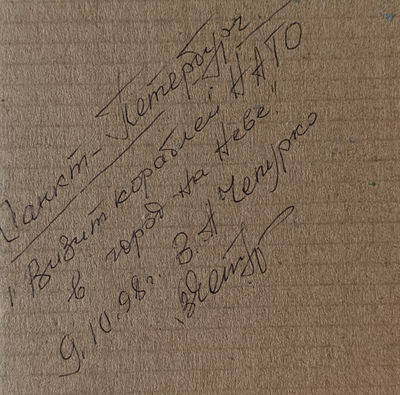 Санкт-Петербург.
"Визит кораблей НАТО
в город на Неве."
9.10.98г. В.А Чепурко